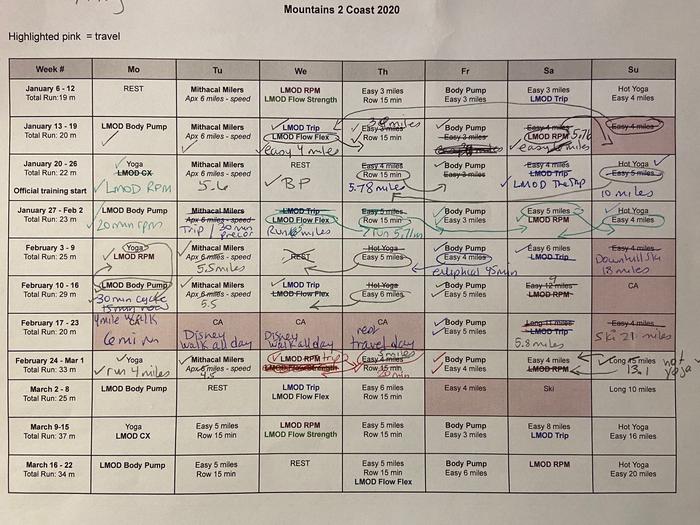 Mountains 2 Coast 2020
Highlighted pink = travel
Week # Mo Tu We Th Fr Sa Su
January 6 - 12
Total Run: 19 m
REST
Mithacal Milers
Apx 6 miles - speed
LMOD RPM
LMOD Flow Strength
Easy 3 miles
Row 15 min
Body Pump
Easy 3 miles
Easy 3 miles
LMOD Trip
Hot Yoga
Easy 4 miles
January 13 - 19
Total Run: 20 m
LMOD Body Pump
Mithacal Milers
Apx 6 miles - speed
LMOD Trip
LMOD Flow Flex
easy 4 miles
3 miles
Easy 3 miles
Row 15 min
Body Pump
Easy 3 miles
Easy 4 miles
LMOD RPM 5.76
easy miles
Easy 4 miles
January 20 - 26
Total Run: 22 m
Official training start
Yoga
LMOD CX
LMOD RPM
Mithacal Milers
Apx 6 miles - speed
5.6
REST
BP
Easy 4 miles
Row 15 min
5.78 miles
Body Pump
Easy 3 miles
Easy 4 miles
LMOD Trip
LMOD The Trip
Hot Yoga
Easy 5 miles
10 miles
January 27 - Feb 2
Total Run: 23 m
LMOD Body Pump
20 min rpm
Mithacal Milers
Apx 6 miles - speed
Trip / 30 min
Precor
LMOD Trip
LMOD Flow Flex
Run miles
Easy 5 miles
Row 15 min
Run 5.11m
Body Pump
Easy 3 miles
Easy 5 miles
LMOD RPM
Hot Yoga
Easy 4 miles
February 3 - 9
Total Run: 25 m
Yoga
LMOD RPM
Mithacal Milers
Apx 6 miles - speed
5.5 miles
REST
Hot Yoga
Easy 5 miles
Body Pump
Easy 4 miles
eliptical 45min
Easy 6 miles
LMOD Trip
Easy 4 miles
Downhill Ski
18 miles
February 10 - 16
Total Run: 29 m
LMOD Body Pump
30 min cycle
15 min row
Mithacal Milers
Apx 6 miles - speed
5.5
LMOD Trip
LMOD Flow Flex
Hot Yoga
Easy 6 miles
Body Pump
Easy 5 miles
9
Easy 12 miles
LMOD RPM
CA
February 17 - 23
Total Run: 20 m
4 mile walk
CA
6 mi run
CA
Disney
walk all day
CA
Disney
walk all day
CA
travel day
Body Pump
Easy 5 miles
Long 11 miles
LMOD Trip
5.8 miles
Easy 4 miles
Ski 21 miles
February 24 - Mar 1
Total Run: 33 m
Yoga
run 4 miles
Mithacal Milers
Apx 6 miles - speed
4.5
LMOD RPM trip
LMOD Flow Strength
5 miles
Easy 4 miles
Row 15 min
20 min
Body Pump
Easy 3 miles
Easy 4 miles
LMOD RPM
Long 15 miles
13.1
not
yoga
March 2 - 8
Total Run: 25 m
LMOD Body Pump
REST
LMOD Trip
LMOD Flow Flex
Easy 6 miles
Row 15 min
Easy 4 miles
Ski
Long 10 miles
March 9-15
Total Run: 37 m
Yoga
LMOD CX
Easy 5 miles
Row 15 min
LMOD RPM
LMOD Flow Strength
Easy 5 miles
Row 15 min
Body Pump
Easy 3 miles
Easy 8 miles
LMOD Trip
Hot Yoga
Easy 16 miles
March 16 - 22
Total Run: 34 m
LMOD Body Pump
Easy 5 miles
Row 15 min
REST
Easy 5 miles
Row 15 min
LMOD Flow Flex
Body Pump
Easy 6 miles
LMOD RPM
Hot Yoga
Easy 20 miles